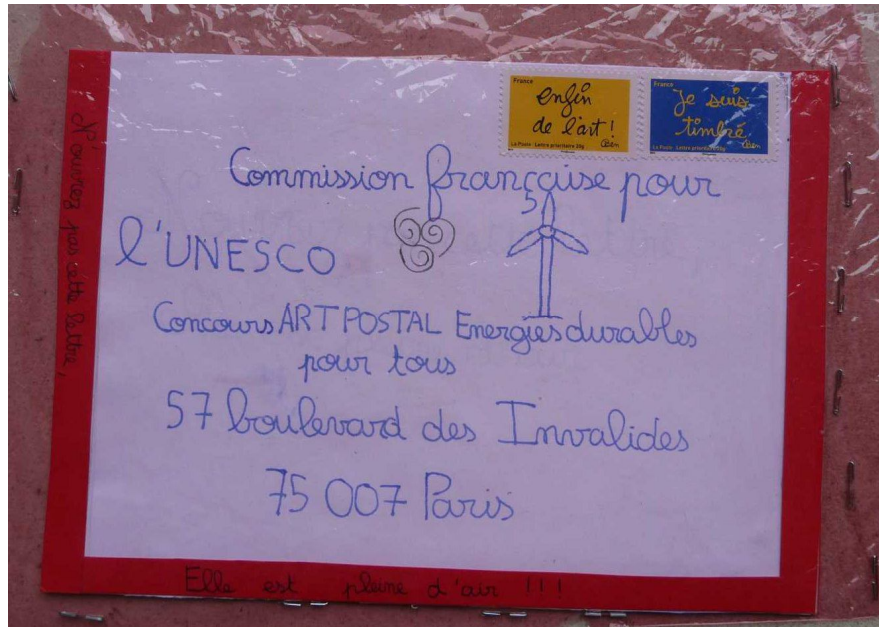 France
enfin
de l'art!
Ben
La Poste - Lettre prioritaire 20g
France
Je suis
timbré
Ben
La Poste - Lettre prioritaire 20g
Commission française pour
l'UNESCO
Concours ART POSTAL Energies durables
pour tous
57 boulevard des Invalides
75 007 Paris
N'ouvrez pas cette lettre,
Elle est pleine d'air !!!